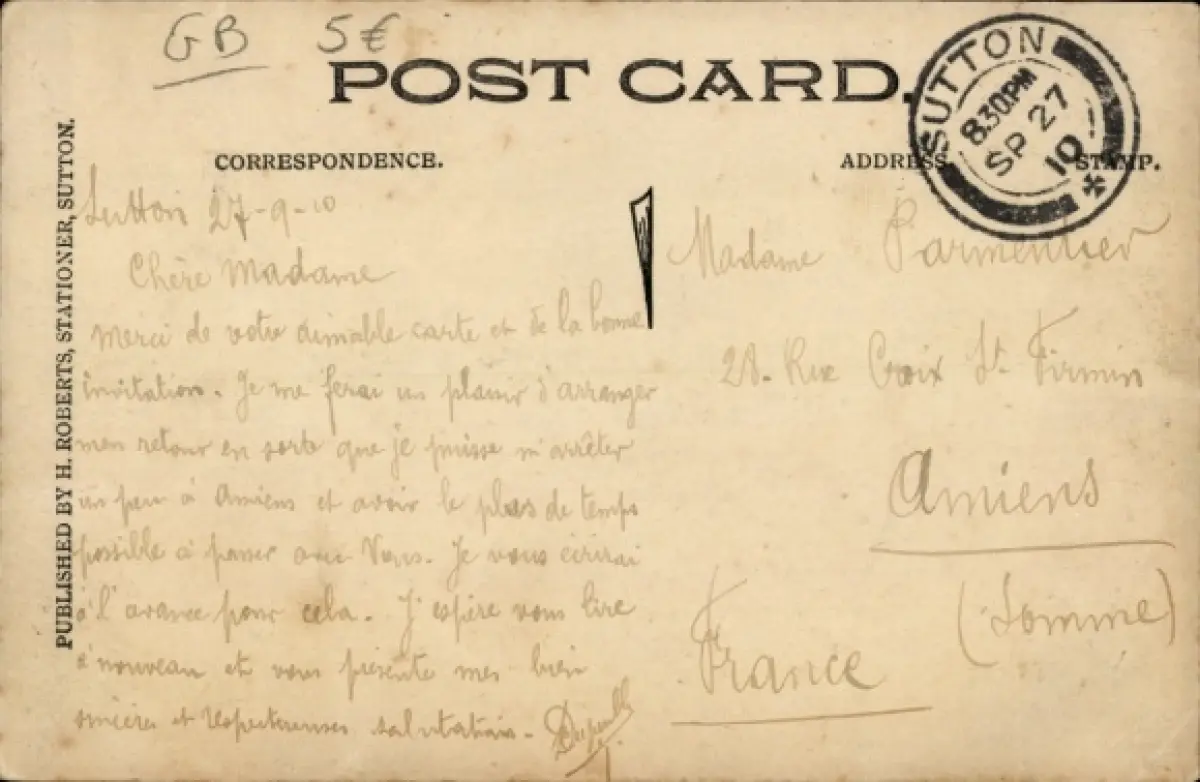 GB 5€
POST CARD.
SUTTON
8.30PM
SP 27
10
CORRESPONDENCE.
ADDRESS
STAMP.
PUBLISHED BY H. ROBERTS, STATIONER, SUTTON.
Sutton 27-9-10
Chère Madame
Merci de votre aimable carte et de la bonne
invitation. Je me ferai un plaisir d'arranger
mon retour en sorte que je puisse m'arrêter
un peu à Amiens et avoir le plus de temps
possible à passer avec Vous. Je vous écrirai
à l'avance pour cela. J'espère vous lire
à nouveau et vous présente mes bien
sincères et respectueuses salutations.
Madame Parmentier
28. Rue Croix St. Firmin
Amiens
(Somme)
France